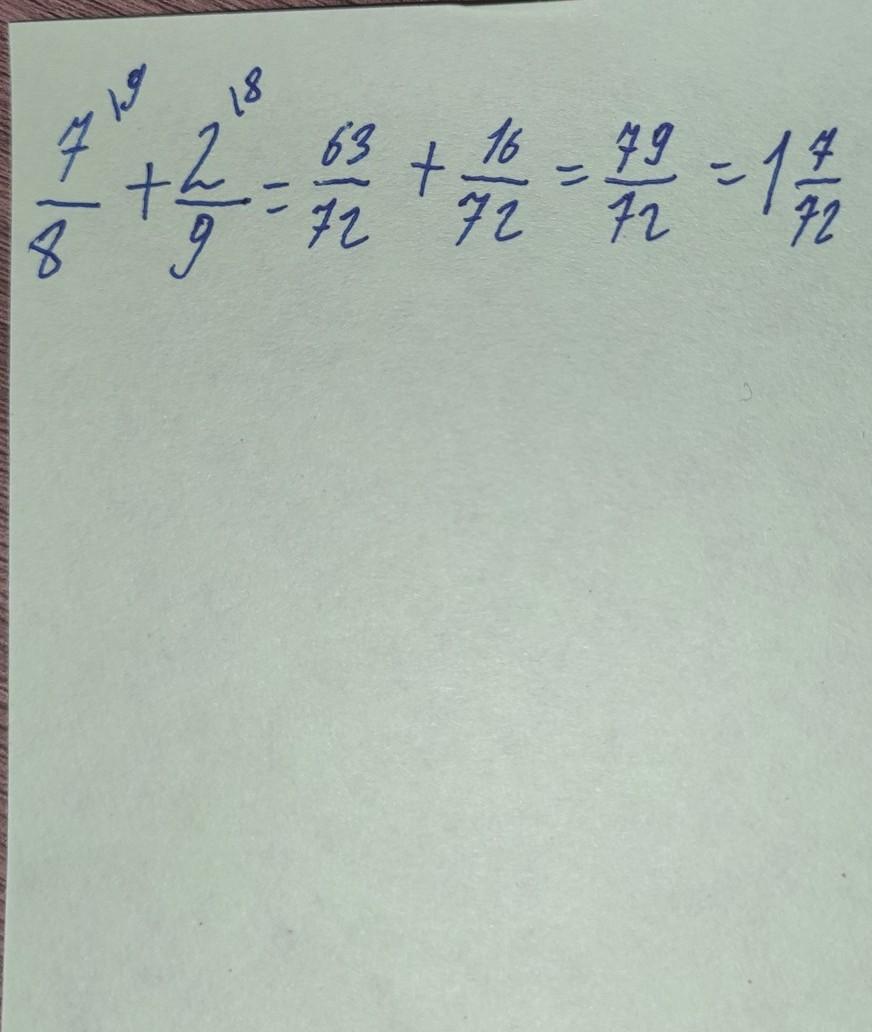 7\9/8 + 2\8/9 = 63/72 + 16/72 = 79/72 = 1 7/72